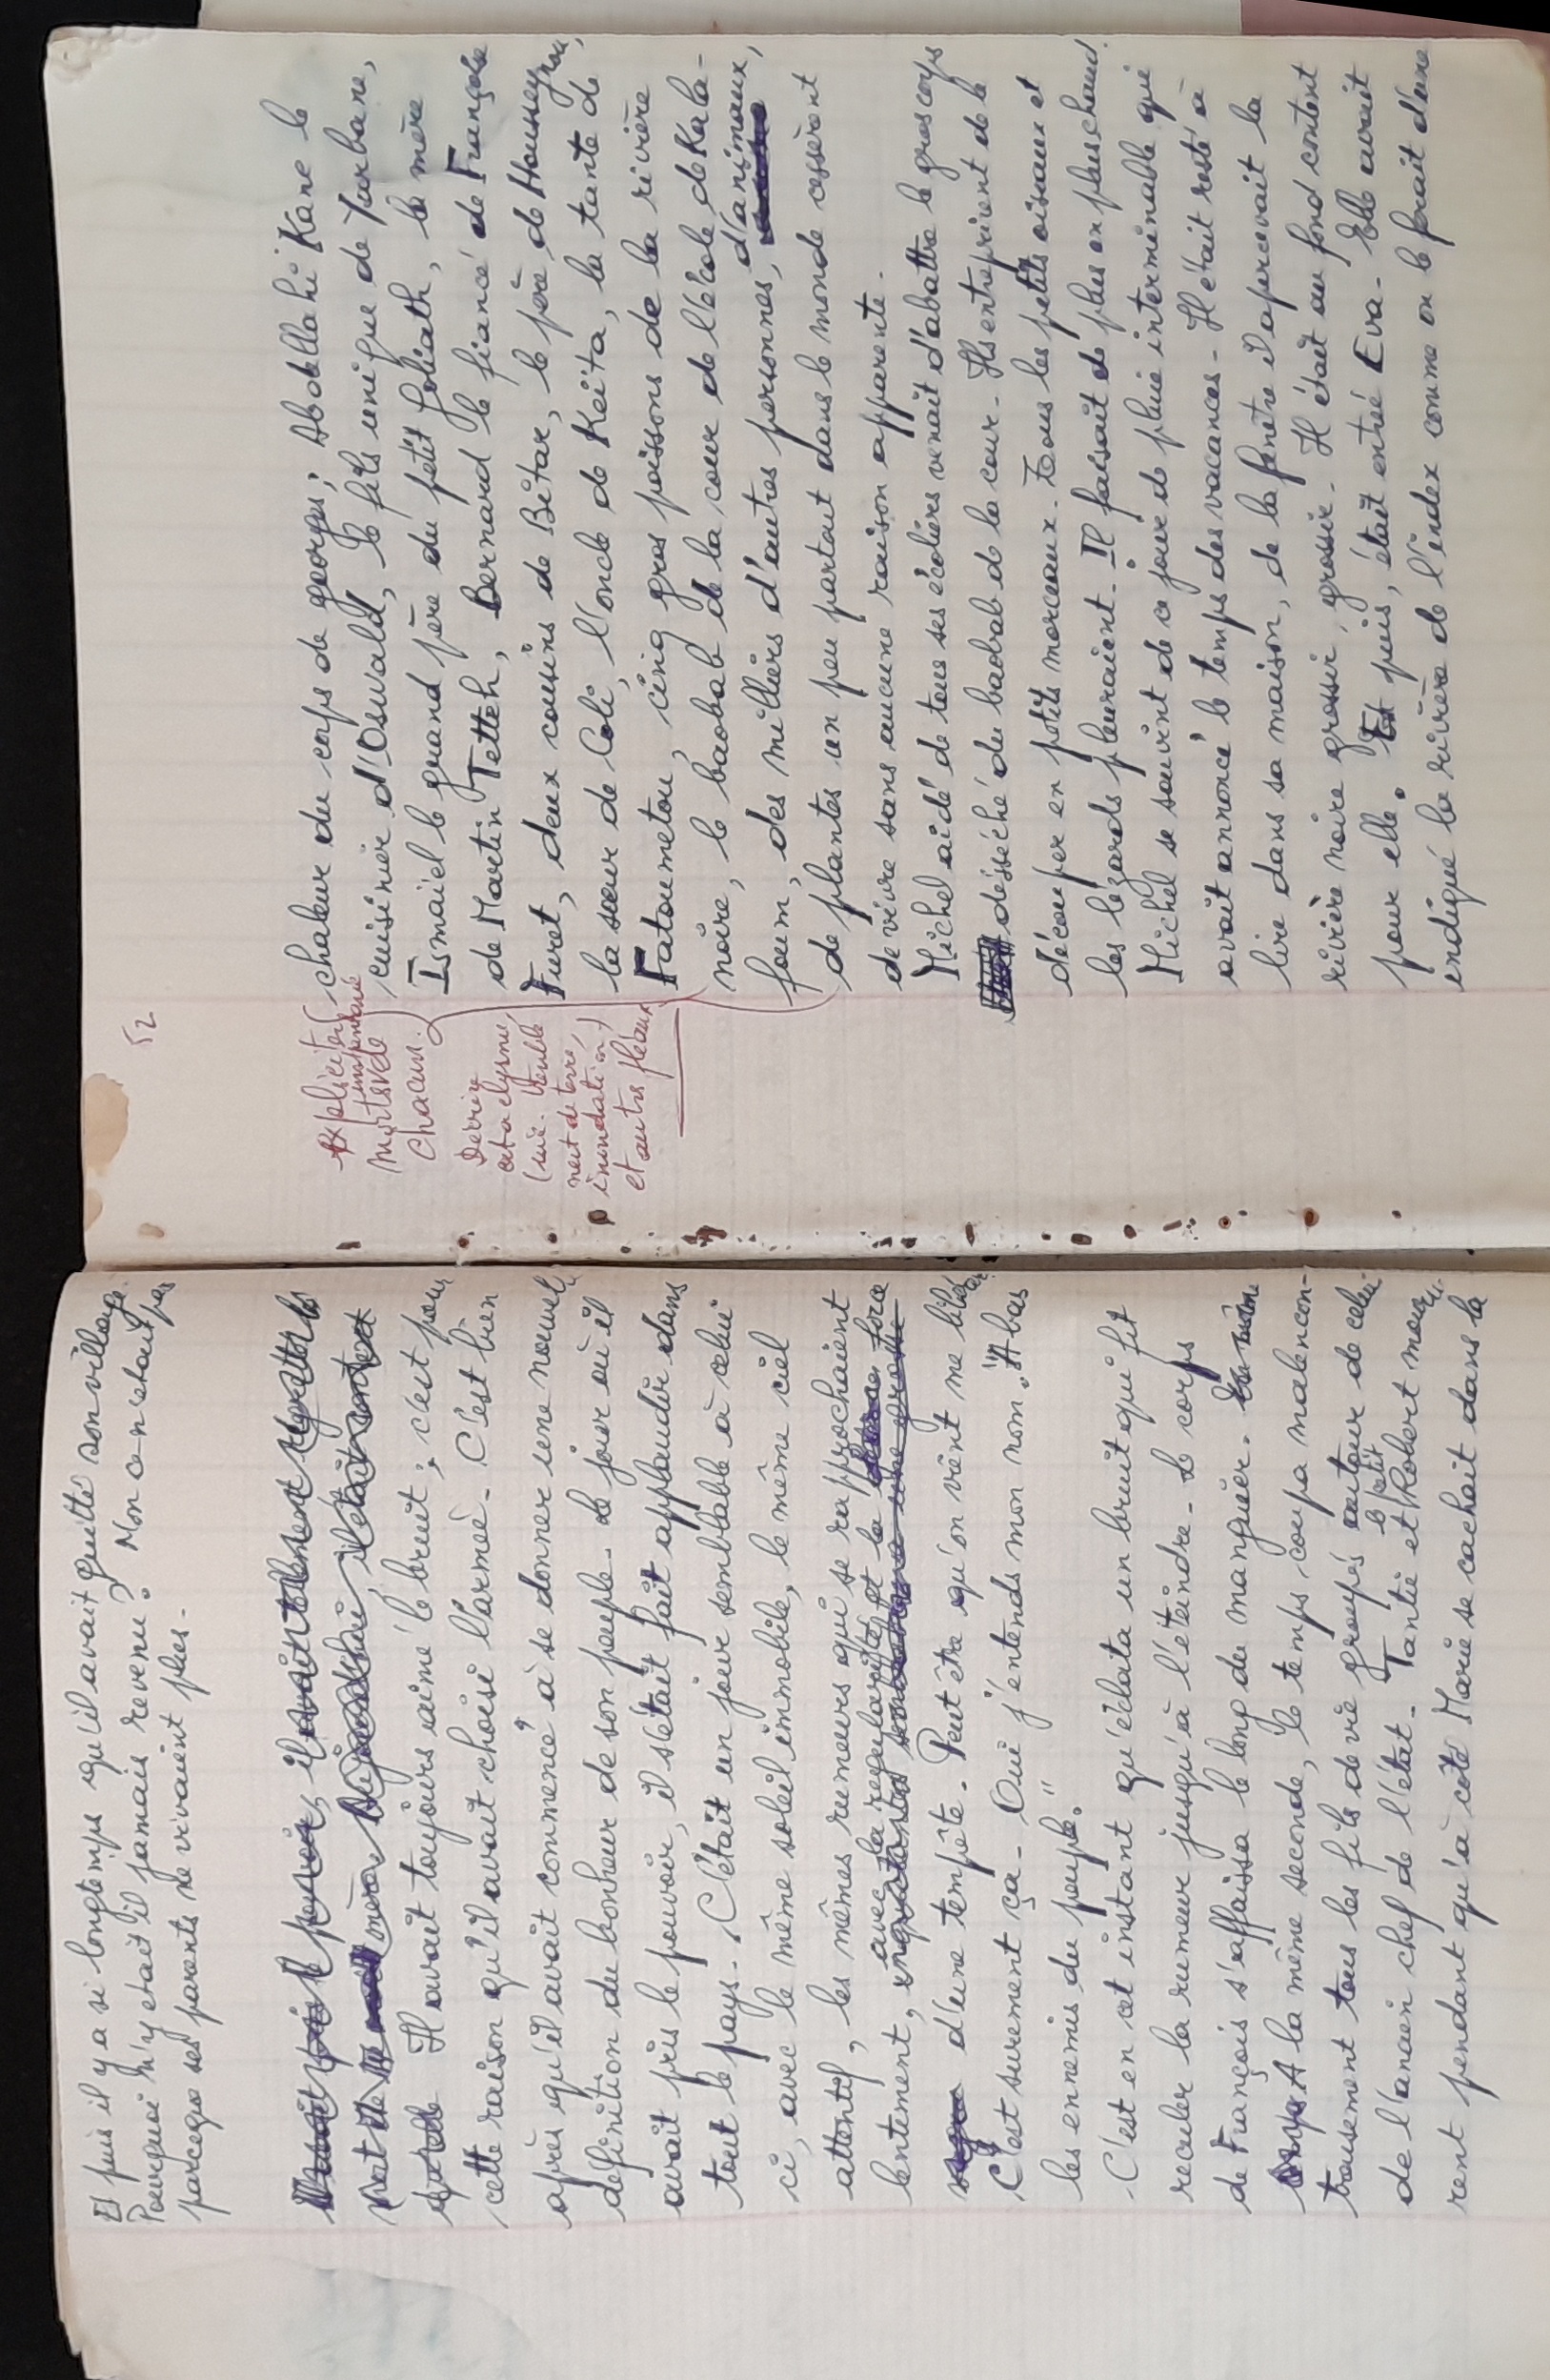 Et puis il y a si longtemps qu'il avait quitté son village.
Pourquoi n'y était il jamais revenu ? Mon en-n'etait pas
parceque ses parents ne vivaient plus.
mère
Il avait toujours aimé le bruit ; c'est pour
cette raison qu'il avait choisi l'armée. C'est bien
après qu'il avait commencé à se donner une nouvelle
définition du bonheur de son peuple. Le jour où il
avait pris le pouvoir, il s'était fait applaudir dans
tout le pays. C'était un jour semblable à celui
ci, avec le même soleil immobile, le même ciel
attentif, les mêmes rumeurs qui se rapprochaient
lentement, avec la regularité et la force
d'une tempête. Peut être qu'on vient me libérer.
C'est surement ça. Oui j'entends mon nom. "A bas
les ennemis du peuple."
C'est en cet instant qu'éclata un bruit qui fit
reculer la rumeur jusqu'à l'éteindre. Le corps
de François s'affaissa le long du manguier.
A la même seconde, le temps coupa malencon-
treusement tous les fils de vie groupés autour de celui
de l'ancien chef de l'état. Tantie et le petit Robert mouru-
rent pendant qu'à côté Marie se cachait dans la
52
chaleur du corps de georges ; Abdellahi Kane le
cuisinier d'Oswald, le fils unique de Yarbane,
Ismaïel le grand père du petit Goliath, la mère
de Martin Tetteh, Bernard le fiancé de Françoise
Furet, deux cousins de Bitar, le père de Housseynou,
la sœur de Coli, l'oncle de Keïta, la tante de
Fatoumetou, cinq gros poissons de la rivière
noire, le baobab de la cour de l'école de Kala-
foum, des milliers d'autres personnes, d'animaux,
de plantes un peu partout dans le monde cessèrent
de vivre sans aucune raison apparente.
Michel aidé de tous ses écoliers venait d'abattre le gros corps
désséché du baobab de la cour. Ils entreprirent de le
découper en petits morceaux. Tous les petits oiseaux et
les lézards pleuraient. Il faisait de plus en plus chaud.
Michel se souvint de ce jour de pluie interminable qui
avait annoncé le temps des vacances. Il était resté à
lire dans sa maison, de la fenêtre il apercevait la
rivière noire grossir, grossir. Il était au fond content
pour elle. Et puis, était entrée Eva. Elle avait
endigué la rivière de l'index comme on le ferait d'une
expliciter
mort instantané
de
chacun.
Derrière
cataclysme,
(tremble
ment de terre,
inondation)
et autres fléaux